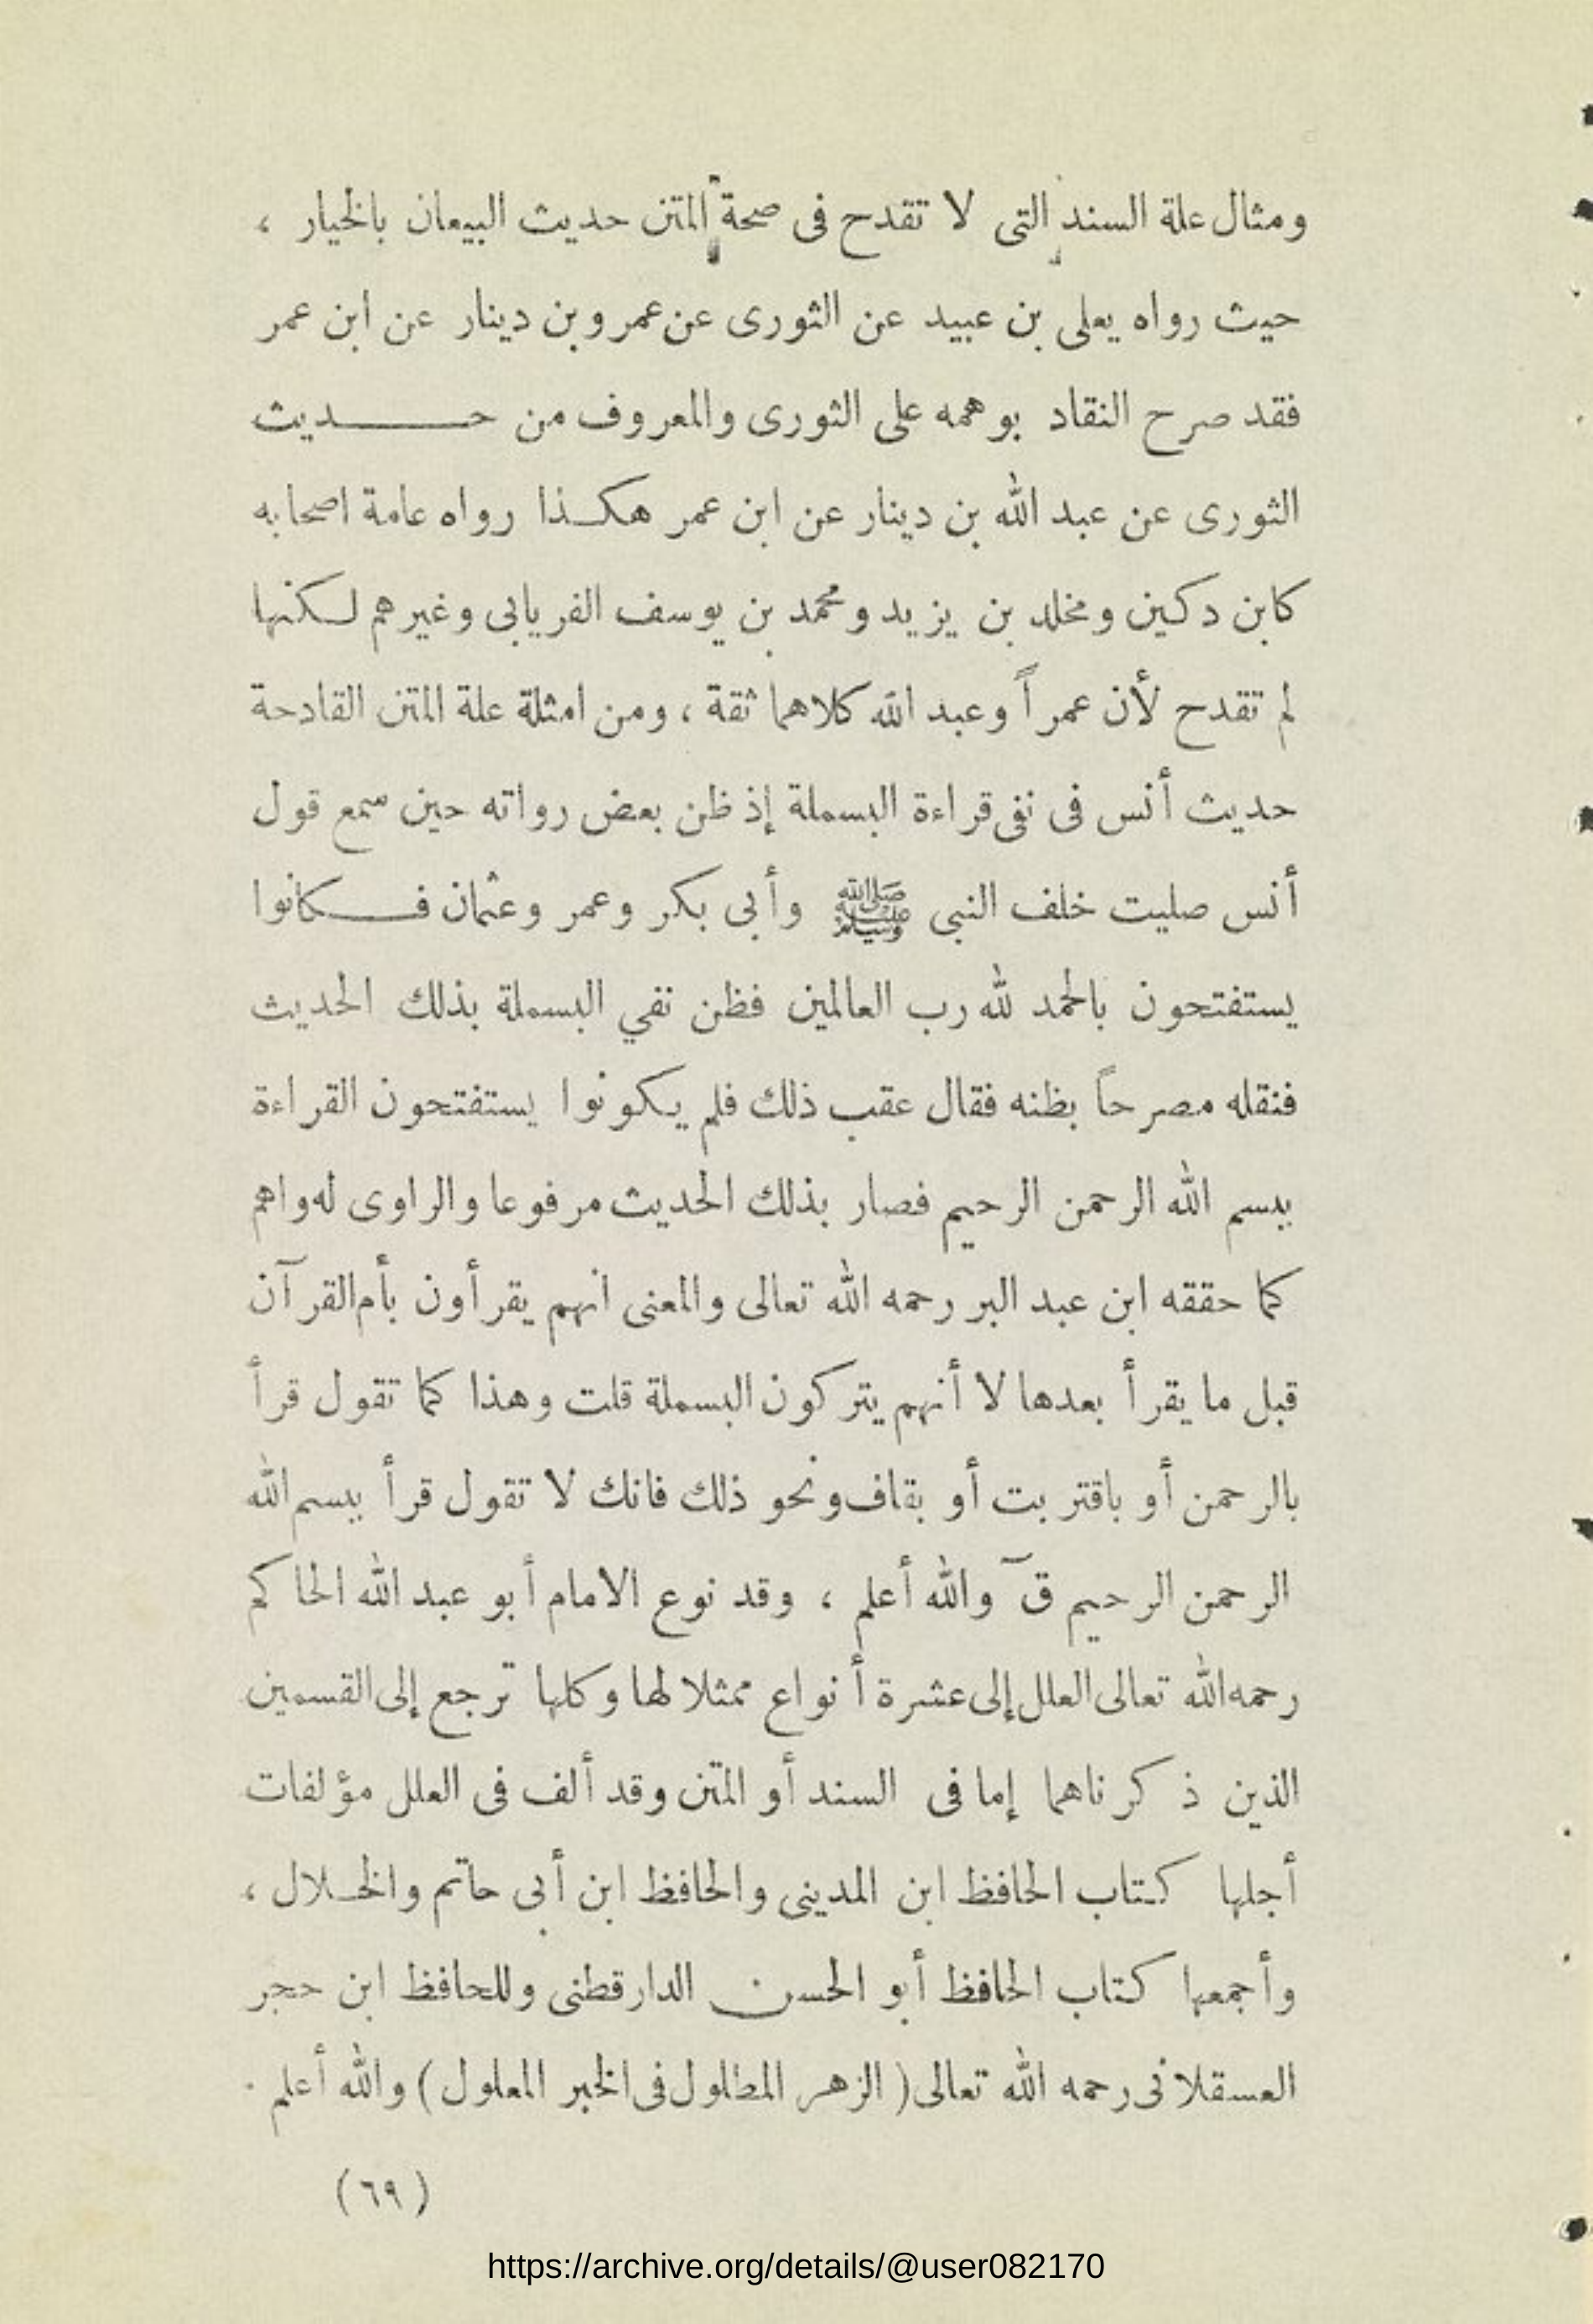 ومثال علة السند التى لا تقدح فى صحة المتن حديث البيعان بالخيار ،
حيث رواه يعلى بن عبيد عن الثورى عن عمرو بن دينار عن ابن عمر
فقد صرح النقاد بوهمه على الثورى والمعروف من حـــــديث
الثورى عن عبد الله بن دينار عن ابن عمر هكـذا رواه عامة اصحابه
كابن دكين ومخلد بن يزيد ومحمد بن يوسف الفريابى وغيرهم لـكنها
لم تقدح لأن عمراً وعبد الله كلاهما ثقة ، ومن امثلة علة المتن القادحة
حديث أنس فى نفى قراءة البسملة إذ ظن بعض رواته حين سمع قول
أنس صليت خلف النبى ﷺ وأبى بكر وعمر وعثمان فـــكانوا
يستفتحون بالحمد لله رب العالمين فظن نفي البسملة بذلك الحديث
فنقله مصرحاً بظنه فقال عقب ذلك فلم يـكونوا يستفتحون القراءة
ببسم الله الرحمن الرحيم فصار بذلك الحديث مرفوعا والراوى له واهم
كما حققه ابن عبد البر رحمه الله تعالى والمعنى انهم يقرأون بأم القرآن
قبل ما يقرأ بعدها لا أنهم يتركون البسملة قلت وهذا كما تقول قرأ
بالرحمن أو باقتربت أو بقاف ونحو ذلك فانك لا تقول قرأ ببسم الله
الرحمن الرحيم قٓ والله أعلم ، وقد نوع الامام أبو عبد الله الحاكم
رحمه الله تعالى العلل إلى عشرة أنواع ممثلا لها وكلها ترجع إلى القسمين
الذين ذكرناهما إما فى السند أو المتن وقد ألف فى العلل مؤلفات
أجلها كـتاب الحافظ ابن المدينى والحافظ ابن أبى حاتم والخـلال ،
وأجمعها كـتاب الحافظ أبو الحسن الدارقطنى وللحافظ ابن حجر
العسقلانى رحمه الله تعالى ( الزهر المطلول فى الخبر المعلول ) والله أعلم .
( ٦٩ )
https://archive.org/details/@user082170